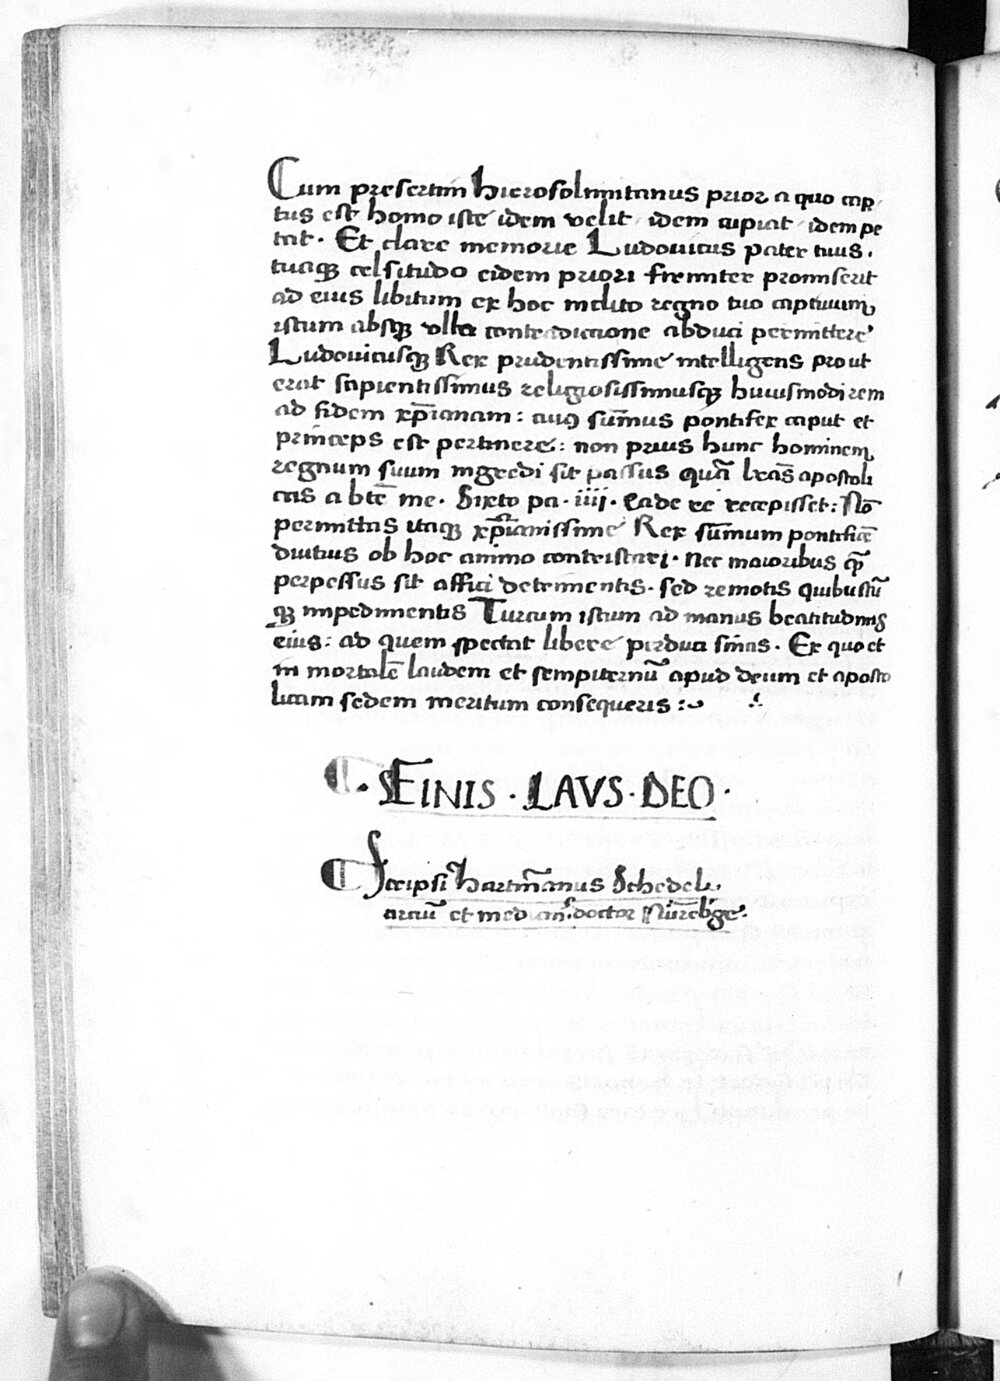 Cum presertim hierosolimitanus prior a quo cap
tus est homo iste idem velit / idem cupiat / idem pe
tat · Et clare memorie Ludovicus pater tuus ·
tuaqꝫ celsitudo eidem priori firmiter promiserit
ad eius libitum ex hoc inclito regno tuo captiuum
istum absqꝫ vlla contradictione abduci permittere
Ludouicusqꝫ Rex prudentissime intelligens prout
erat sapientissimus religiosissimusqꝫ huiusmodi rem
ad fidem xp̅ianam : cuiꝰ sum̅us pontifex caput et
princeps est pertinere : non prius hunc hominem
regnum suum ingredi sit passus qua̅ l̅r̅a̅s apostoli
cas a bt̅e me · Sixto pa · iiii · eade re recepisset : No̅
permittas itaqꝫ xp̅ianissime Rex sum̅um pontifice̅
diutius ob hoc animo contristari · nec maioribus qꝫ
perpessus sit affici detrimentis · sed remotis quibuscu̅
qꝫ impedimentis Turcum istum ad manus beatitudinis
eius : ad quem spectat libere perduci sinas · Ex quo et
in mortale̅ laudem et sempiternu̅ apud deum et aposto
licam sedem meritum consequeris :~ ∴
· FINIS · LAVS · DEO ·
Scripsi hartma̅nus Schedel
arciu̅ et medicin̅ doctor Nure̅b̅ge ·